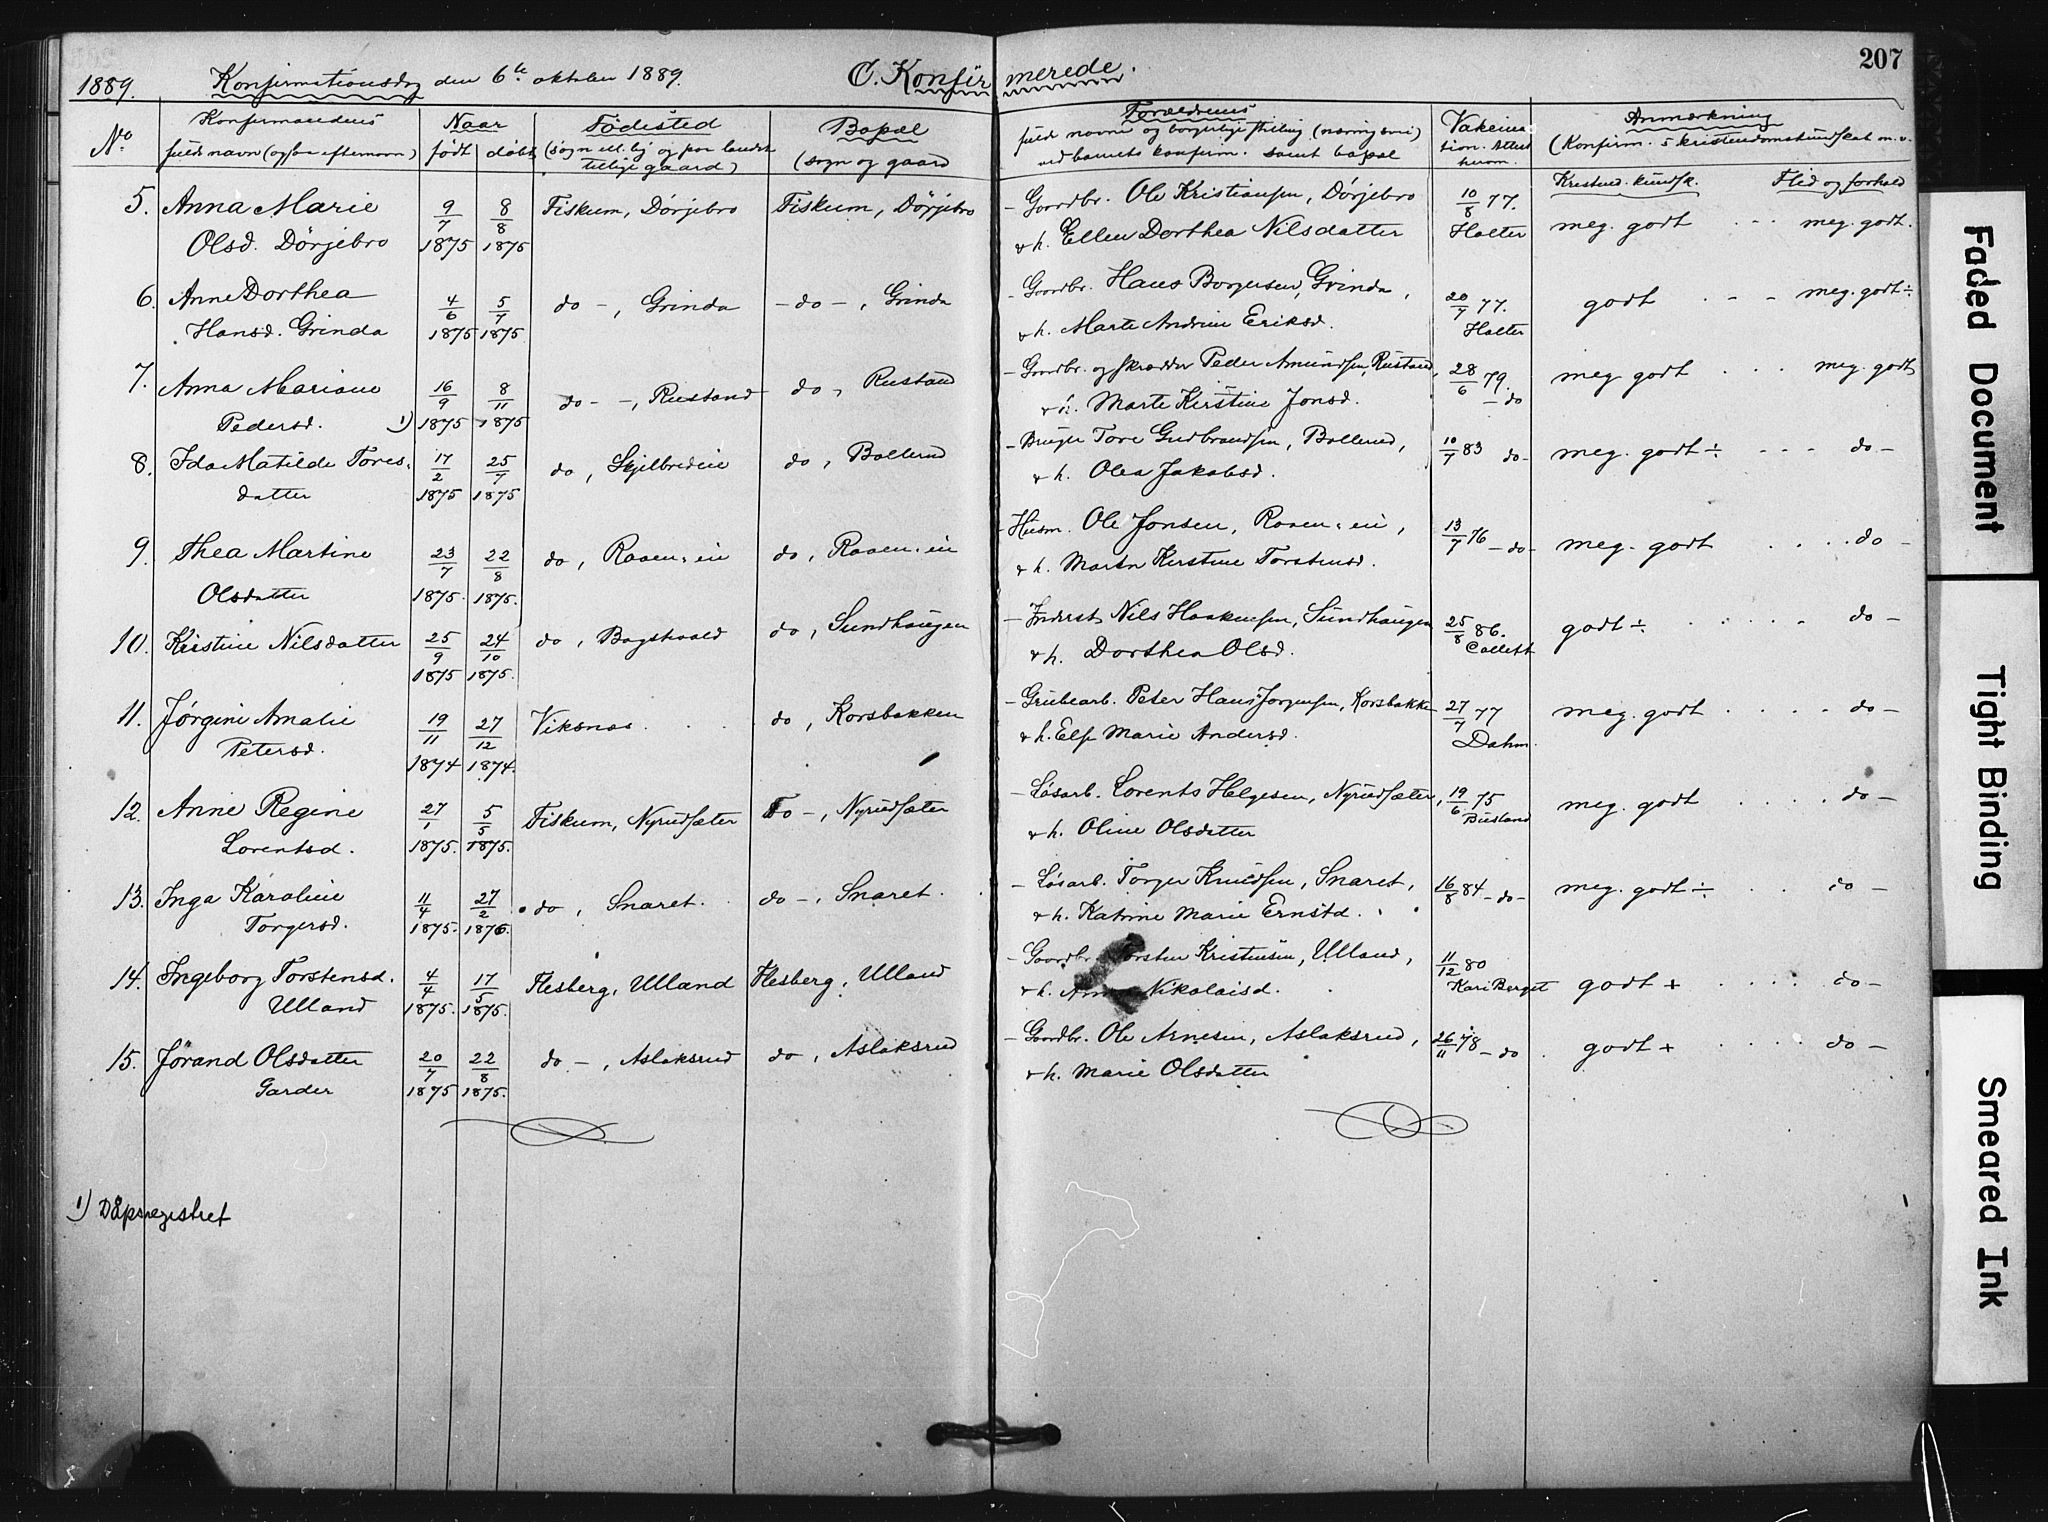 207
1889. Konfirmationsdag den 6te oktober 1889. C. Konfirmerede.
No. Konfirmandens fulde navn (ogsaa efternavn) Naar født døbt Fødested (sogn ell. by og paa landet tillige gaard) Bopæl (sogn og gaard Forældrenes fulde navne og borgerlige stilling (næringsvei) ved barnets konfirm. samt bopæl Vakcination. Attest hvem. Anmærkning (Konfirm.s kristendomskundskab m.v.
Kristend. kundsk. Flid og forhold
5. Anna Marie 9/7 8/8 Fiskum, Dørjebro Fiskum, Dørjebro - Gaardbr. Ole Kristiansen, Dørjebro 10/8 77.
Olsd. Dørjebro 1875 1875 & h. Ellen Dorthea Nilsdatter Holter meg. godt - - meg. godt.
6. Anne Dorthea 4/6 5/7 do -, Grinda - do -, Grinda - Gaardbr. Hans Borgersen, Grinda, 20/7 77. godt - - meg. godt ÷
Hansd. Grinda 1875 1875 & h. Marte Andrine Eriksd. Holter
7. Anna Mariane 16/9 8/11 do - -, Rustand do, Rustand - Gaardbr. og skrædder Peder Amundsen, Rustand, 28/6 79. meg godt . . . meg. godt
Pedersd. 1) 1875 1875 & h. Marte Kirstine Jonsd. - do
8. Ida Matilde Tores- 17/2 25/7 do, Skjelbredeie do, Bollerud - Brugbr Tore Gudbrandsen, Bollerud, 10/7 83 do - meg. godt ÷ - - - do -
datter 1875 1875 & h. Olea Jakobsd.
9. Thea Martine 23/7 22/8 do, Raaen-eie do, Raaen-eie - Husm. Ole Jonsen, Raaen-eie, 13/7 76 - do - meg. godt . . . . do -
Olsdatter 1875. 1875. & h. Marta Kirstine Torstensd.
10. Kristine Nilsdatter 25/9 24/10 do, Bagstvald do, Sundhaugen - Inderst Nils Haakensen, Sundhaugen 25/8 86. godt ÷ . . . . . do -
1875 1875. & h. Dorthea Olsd. Collett
11. Jørgine Amalie 19/11 27/12 Viksnas . . do, Korsbakken - Grubearb. Peter Hans Jørgensen, Korsbakken 27/7 77 meg. godt . . . . . do -
Petersd. 1874 1874. & h. Else Marie Andersd. Dahm.
12. Anne Regine 27/1 5/5 Fiskum, Nyrudsæter Do -, Nyrudsæter - Løsarb. Lorents Helgesen, Nyrudsæter, 19/6 75 meg. godt . . . . do -
Lorentsd. 1875. 1875. & h. Oline Olsdatter Busland
13. Inga Karoline 11/4 27/2 do, Snaret. do -, Snaret. - Løsarb. Torger Knudsen, Snaret, 16/8 84 - do - meg. godt ÷ . . do -
Torgersd. 1875. 1876. & h. Katrine Marie Ernstd.
14. Ingeborg Torstensd. 4/4 17/5 Flesberg, Ulland Flesberg, Ulland - Gaardbr. Torsten Kristensen, Ulland, 11/12 80
Ulland 1875. 1875. & h. Nikolaisd. Kari Berget godt + . . . . do -
15. Jørand Olsdatter 20/7 22/8 do -, Aslaksrud do, Aslaksrud - Gaardbr. Ole Arnesen, Aslaksrud, 26/11 78 - do. godt + . . . . do -
Garder 1875 1875. & h. Marie Olsdatter
1) Dåpsregistret
Faded Document
Tight Binding
Smeared Ink